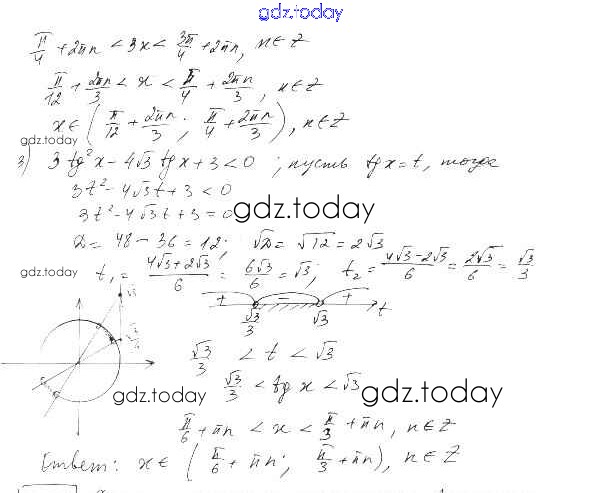 gdz.today
π/4 + 2πn < 3x < 3π/4 + 2πn, n∈Z
π/12 + 2πn/3 < x < π/4 + 2πn/3, n∈Z
x∈(π/12 + 2πn/3; π/4 + 2πn/3), n∈Z
gdz.today
3) 3tg²x − 4√3 tgx + 3 < 0; пусть tgx = t, тогда
3t² − 4√3t + 3 < 0
3t² − 4√3t + 3 = 0
gdz.today
D = 48 − 36 = 12; √D = √12 = 2√3
gdz.today
t₁ = (4√3 + 2√3)/6 = 6√3/6 = √3; t₂ = (4√3 − 2√3)/6 = 2√3/6 = √3/3
+ − +
√3/3 √3 t
√3
√3/3 < t < √3
√3/3 < tg x < √3
gdz.today gdz.today
π/6 + πn < x < π/3 + πn, n∈Z
Ответ: x∈(π/6 + πn; π/3 + πn), n∈Z